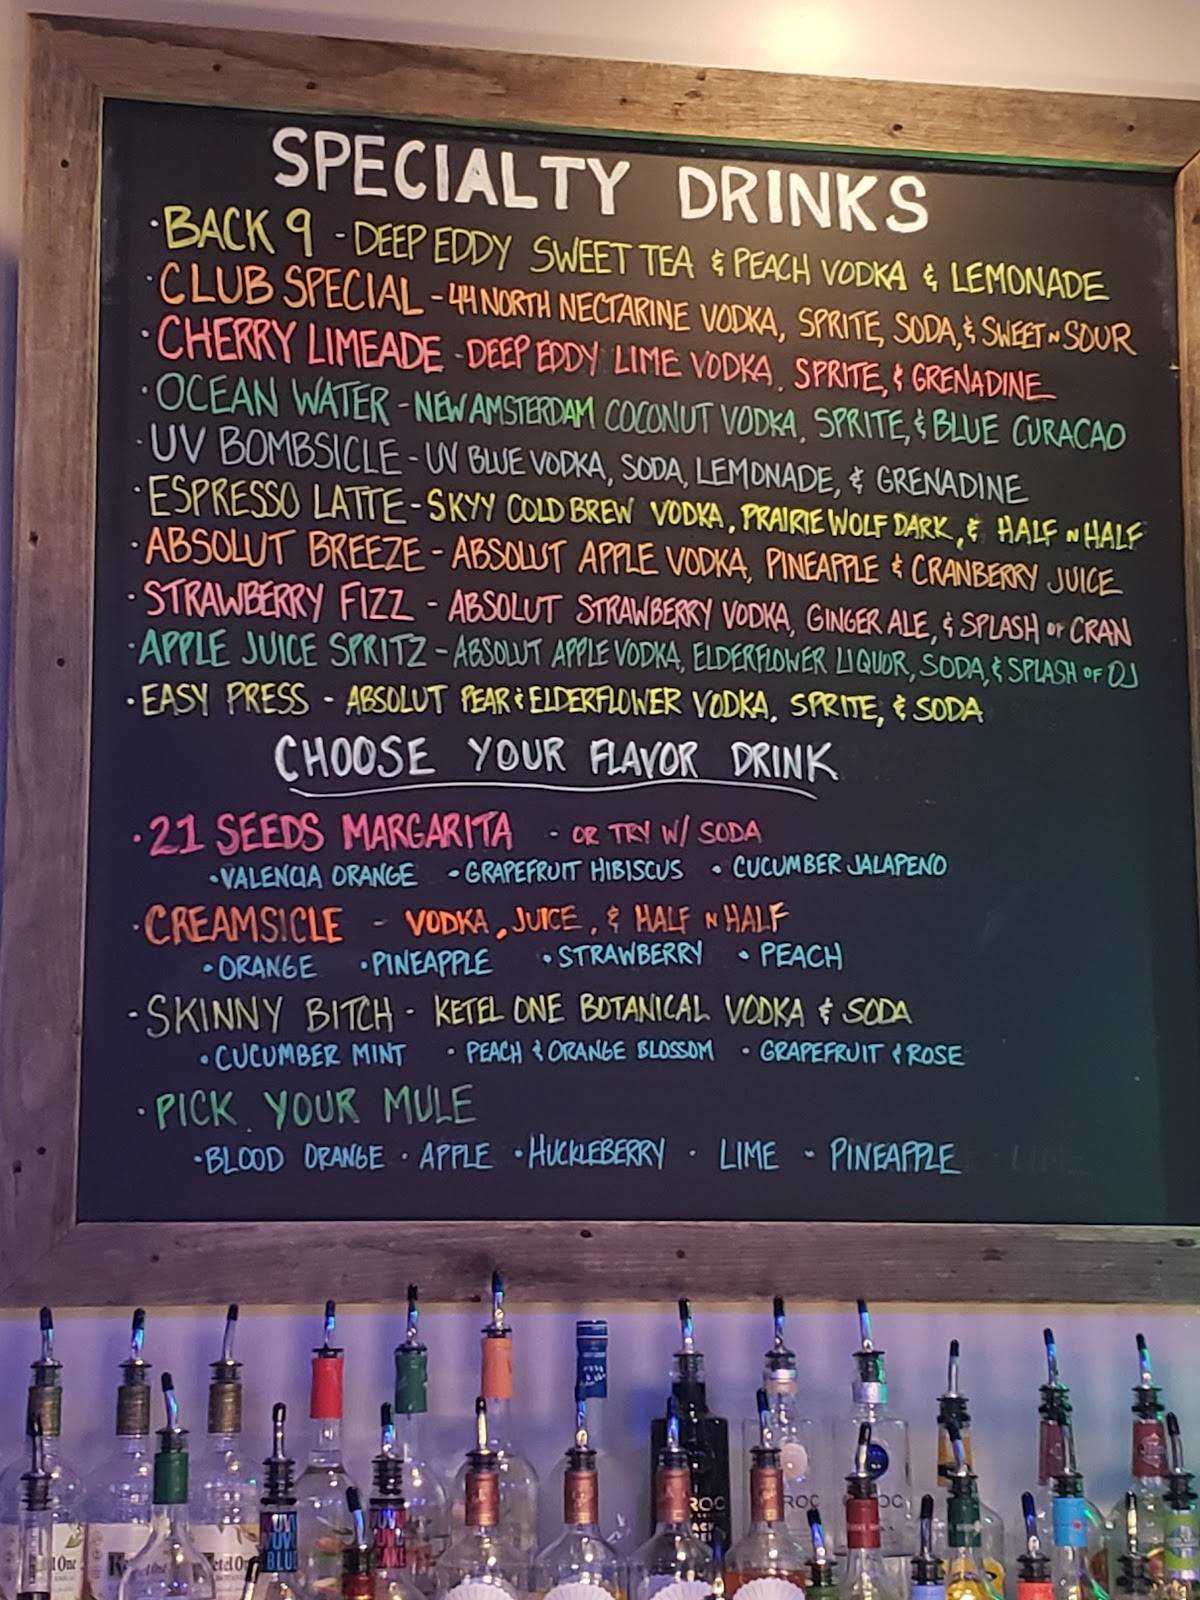 SPECIALTY DRINKS
· BACK 9 - DEEP EDDY SWEET TEA & PEACH VODKA & LEMONADE
· CLUB SPECIAL - 44 NORTH NECTARINE VODKA, SPRITE, SODA, & SWEET N SOUR
· CHERRY LIMEADE - DEEP EDDY LIME VODKA, SPRITE, & GRENADINE
· OCEAN WATER - NEW AMSTERDAM COCONUT VODKA, SPRITE, & BLUE CURACAO
· UV BOMBSICLE - UV BLUE VODKA, SODA, LEMONADE, & GRENADINE
· ESPRESSO LATTE - SKYY COLD BREW VODKA, PRAIRIE WOLF DARK, & HALF N HALF
· ABSOLUT BREEZE - ABSOLUT APPLE VODKA, PINEAPPLE & CRANBERRY JUICE
· STRAWBERRY FIZZ - ABSOLUT STRAWBERRY VODKA, GINGER ALE, & SPLASH OF CRAN
· APPLE JUICE SPRITZ - ABSOLUT APPLE VODKA, ELDERFLOWER LIQUOR, SODA, & SPLASH OF OJ
· EASY PRESS - ABSOLUT PEAR & ELDERFLOWER VODKA, SPRITE, & SODA
CHOOSE YOUR FLAVOR DRINK
· 21 SEEDS MARGARITA - OR TRY W/ SODA
· VALENCIA ORANGE · GRAPEFRUIT HIBISCUS · CUCUMBER JALAPENO
· CREAMSICLE - VODKA, JUICE, & HALF N HALF
· ORANGE · PINEAPPLE · STRAWBERRY · PEACH
· SKINNY BITCH - KETEL ONE BOTANICAL VODKA & SODA
· CUCUMBER MINT · PEACH & ORANGE BLOSSOM · GRAPEFRUIT & ROSE
· PICK YOUR MULE
· BLOOD ORANGE · APPLE · HUCKLEBERRY · LIME · PINEAPPLE